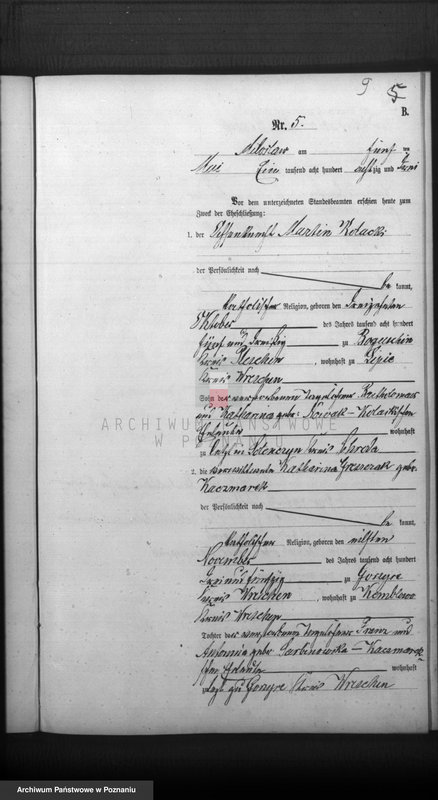 9 5
B.
Nr. 5.
Miloslaw am fünf ten
Mai Ein tausend acht hundert achtzig und drei
Vor dem unterzeichneten Standesbeamten erschien heute zum
Zweck der Eheschließung:
1. der Martin Kolacki
der Persönlichkeit nach
be kannt,
katholischer Religion, geboren den dreizehnten
Oktober des Jahres tausend acht hundert
fünf und dreißig zu Boguschin
Kreis Pleschen, wohnhaft zu
Kreis Wreschen
Sohn des verstorbenen Tagelöhner
und Katharina geb. Nowak - Kolackischen
Eheleute wohnhaft
zu Kreis Schroda
2. die verwittwete Katharina gebr.
Kaczmarek
der Persönlichkeit nach
be kannt,
katholischer Religion, geboren den elften
November des Jahres tausend acht hundert
und fünfzig zu Gorzyce
Kreis Wreschen, wohnhaft zu Kembłowo
Kreis Wreschen
Tochter der verstorbenen Tagelöhner Franz und
Antonia gebr. - Kaczmarek-
schen Eheleute wohnhaft
zu Gorzyce Kreis Wreschen
ARCHIWUM PAŃSTWOWE
W POZNANIU
Archiwum Państwowe w Poznaniu